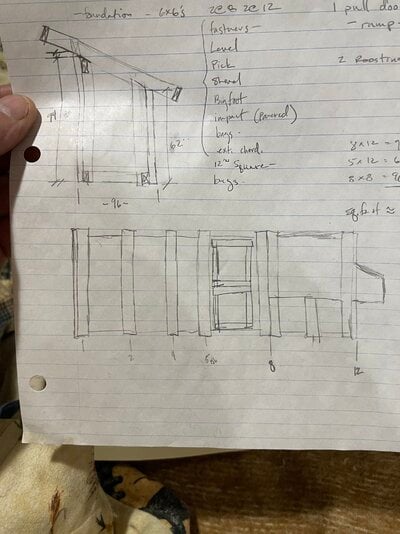 foundation - 6x6's 2@8 2@12
fastners -
Level
Pick
Shovel
Bigfoot
impact (powered)
bags -
ext. chord.
12" Square -
bags.
1 pull doo
- ramp -
2 Roosting
8x12 = 9
5x12 = 6
8x8 =
sq feet ≈
62"
- 96 -
2
4
8
12